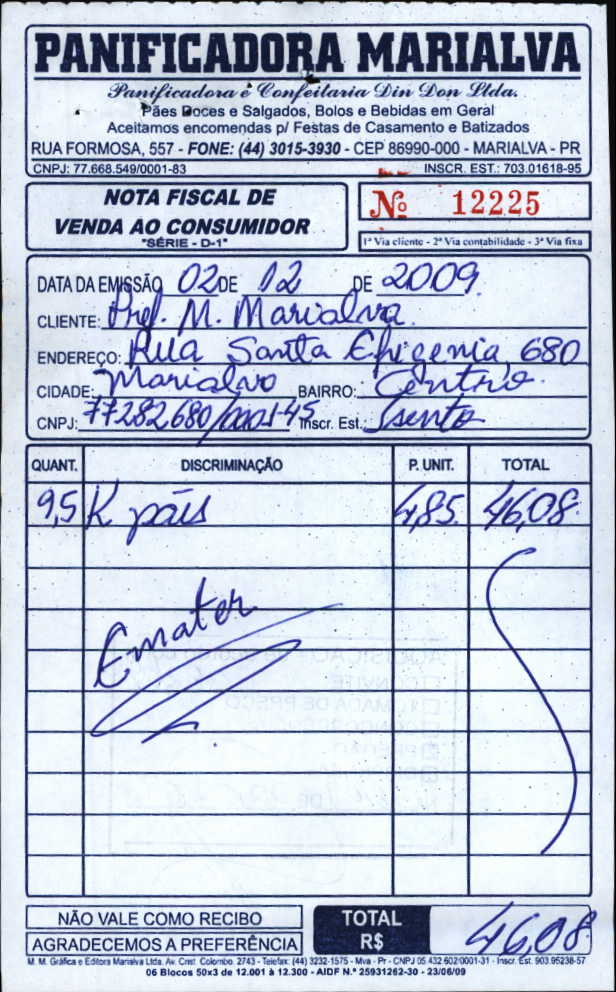 PANIFICADORA MARIALVA
Panificadora e Confeitaria Din Don Ltda.
Pães Doces e Salgados, Bolos e Bebidas em Geral
Aceitamos encomendas p/ Festas de Casamento e Batizados
RUA FORMOSA, 557 - FONE: (44) 3015-3930 - CEP 86990-000 - MARIALVA - PR
CNPJ: 77.668.549/0001-83 INSCR. EST.: 703.01618-95
NOTA FISCAL DE
VENDA AO CONSUMIDOR
"SÉRIE - D-1"
Nº 12225
1ª Via cliente - 2ª Via contabilidade - 3ª Via fixa
DATA DA EMISSÃO 02 DE 12 DE 2009
CLIENTE: Pref. M. Marialva
ENDEREÇO: Rua Santa Efigenia, 680
CIDADE: Marialva BAIRRO: Centro
CNPJ: 77282680/0001-45 Inscr. Est. Isento
QUANT. DISCRIMINAÇÃO P. UNIT. TOTAL
9,5 K pães 4,85 46,08
Emater
NÃO VALE COMO RECIBO
AGRADECEMOS A PREFERÊNCIA
TOTAL
R$ 46,08
M. M. Gráfica e Editora Marialva Ltda. Av. Crist. Colombo, 2743 - Telefax: (44) 3232-1575 - Mva - Pr - CNPJ 05.432.602/0001-31 - Inscr. Est. 903.95238-57
06 Blocos 50x3 de 12.001 à 12.300 - AIDF N.º 25931262-30 - 23/06/09